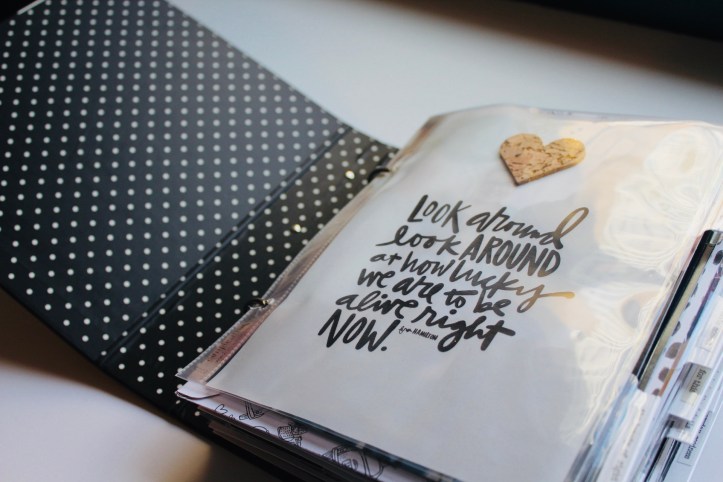 Look around
look AROUND
at how lucky
we are to be
alive right
NOW!
from HAMILTON